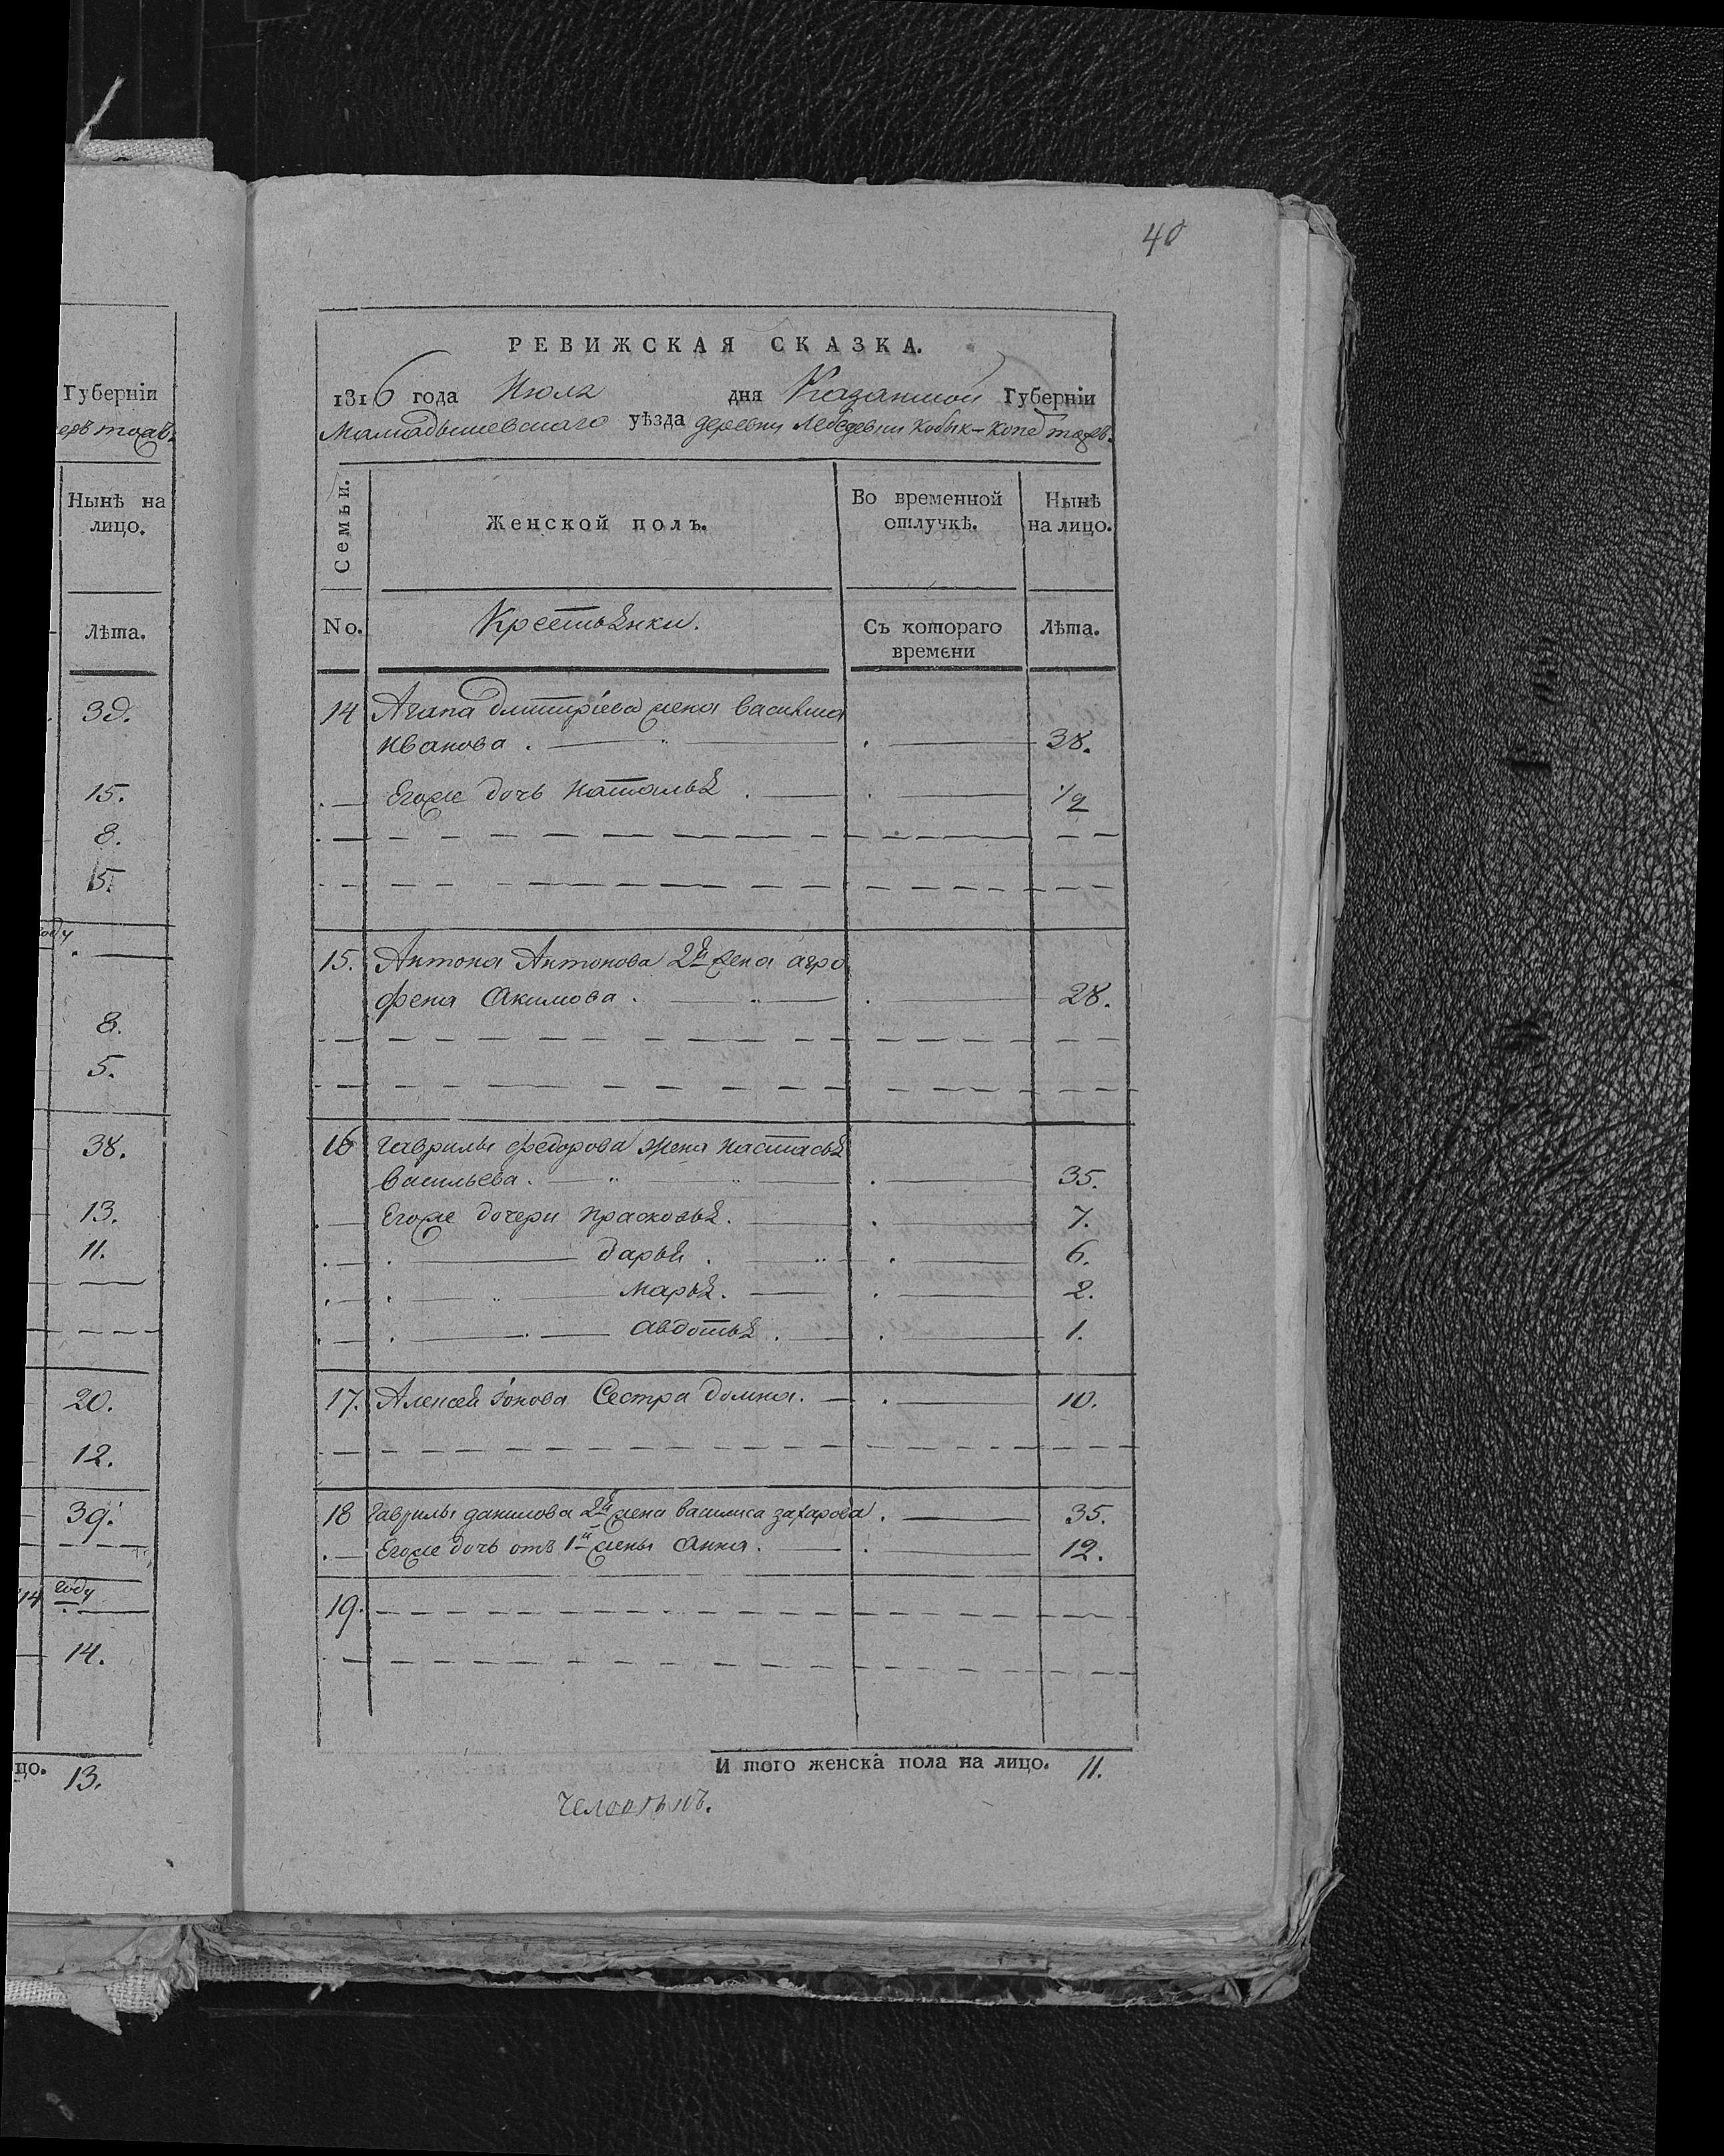 40
РЕВИЖСКАЯ СКАЗКА.
1816 года Июля дня Казанской Губерніи
Мамадышевскаго уѣзда деревни Лебедевки Кобык-Копе тожъ.
Семьи.
Женской полъ.
Во временной отлучкѣ.
Нынѣ на лицо.
No.
Крестьянки.
Съ котораго времени
Лѣта.
14 Агапа Дмитріева жена василиса
Иванова . 38.
Егоже дочь Наталья . 1/2
15. Антона Антонова 2я жена агро
фена Акимова . 28.
16 Гаврилы Федорова жена настасья
васильева . 35.
Егоже дочери Прасковья . 7.
дарья . 6.
Марья . 2.
Авдотья . 1.
17. Алексея Іонова Сестра домна . 10.
18 Гаврилы данилова 2я жена василиса захарова . 35.
Егоже дочь отъ 1й жены Анна . 12.
19.
И того женска пола на лицо. 11.
человѣкъ.
Губерніи
Нынѣ на
лицо.
Лѣта.
39.
15.
8.
15.
году
8.
5.
38.
13.
11.
20.
12.
39.
14 году
14.
цо. 13.